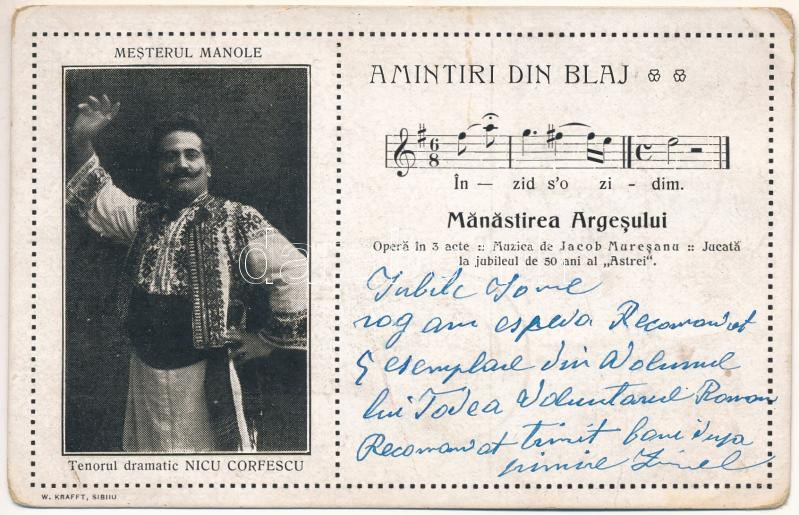 MEȘTERUL MANOLE
Tenorul dramatic NICU CORFESCU
W. KRAFFT, SIBIIU
AMINTIRI DIN BLAJ
În — zid s'o zi - dim.
Mănăstirea Argeșului
Operă în 3 acte :: Muzica de Jacob Mureșanu :: Jucată
la jubileul de 50 ani al „Astrei".
Iubite
rog am Recomandat
5 esemplare din Volumul
lui Todea Voluntarul Roman
Recomandat trimit bani dupa
primire